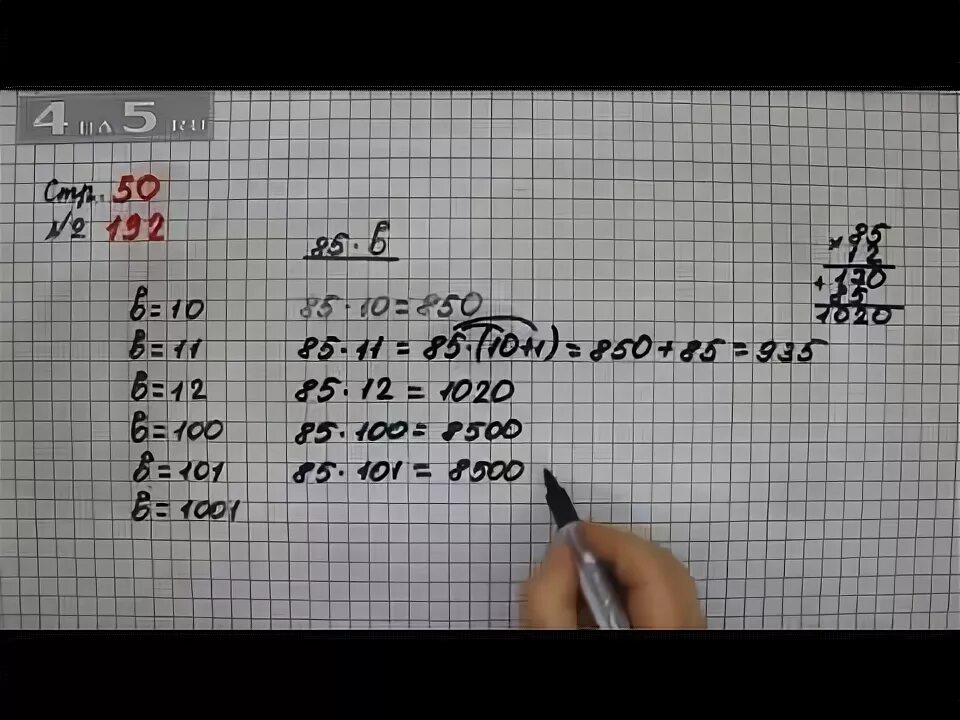 4 на 5 RU
Стр. 50
№ 192
85 · в
× 85
12
+ 170
85
1020
в = 10 85 · 10 = 850
в = 11 85 · 11 = 85 · (10+1) = 850 + 85 = 935
в = 12 85 · 12 = 1020
в = 100 85 · 100 = 8500
в = 101 85 · 101 = 8500
в = 1001